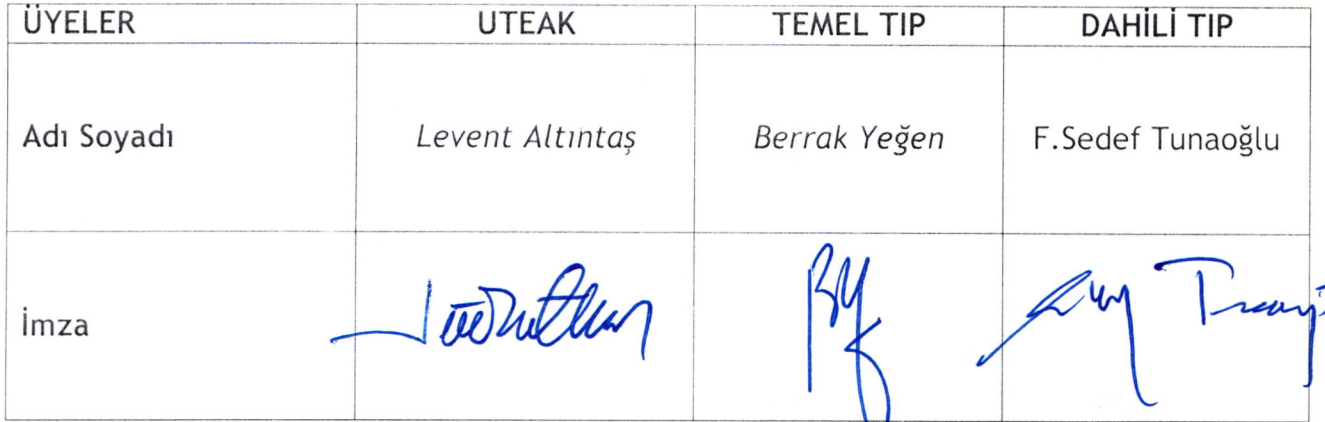 ÜYELER UTEAK TEMEL TIP DAHİLİ TIP
Adı Soyadı Levent Altıntaş Berrak Yeğen F.Sedef Tunaoğlu
İmza